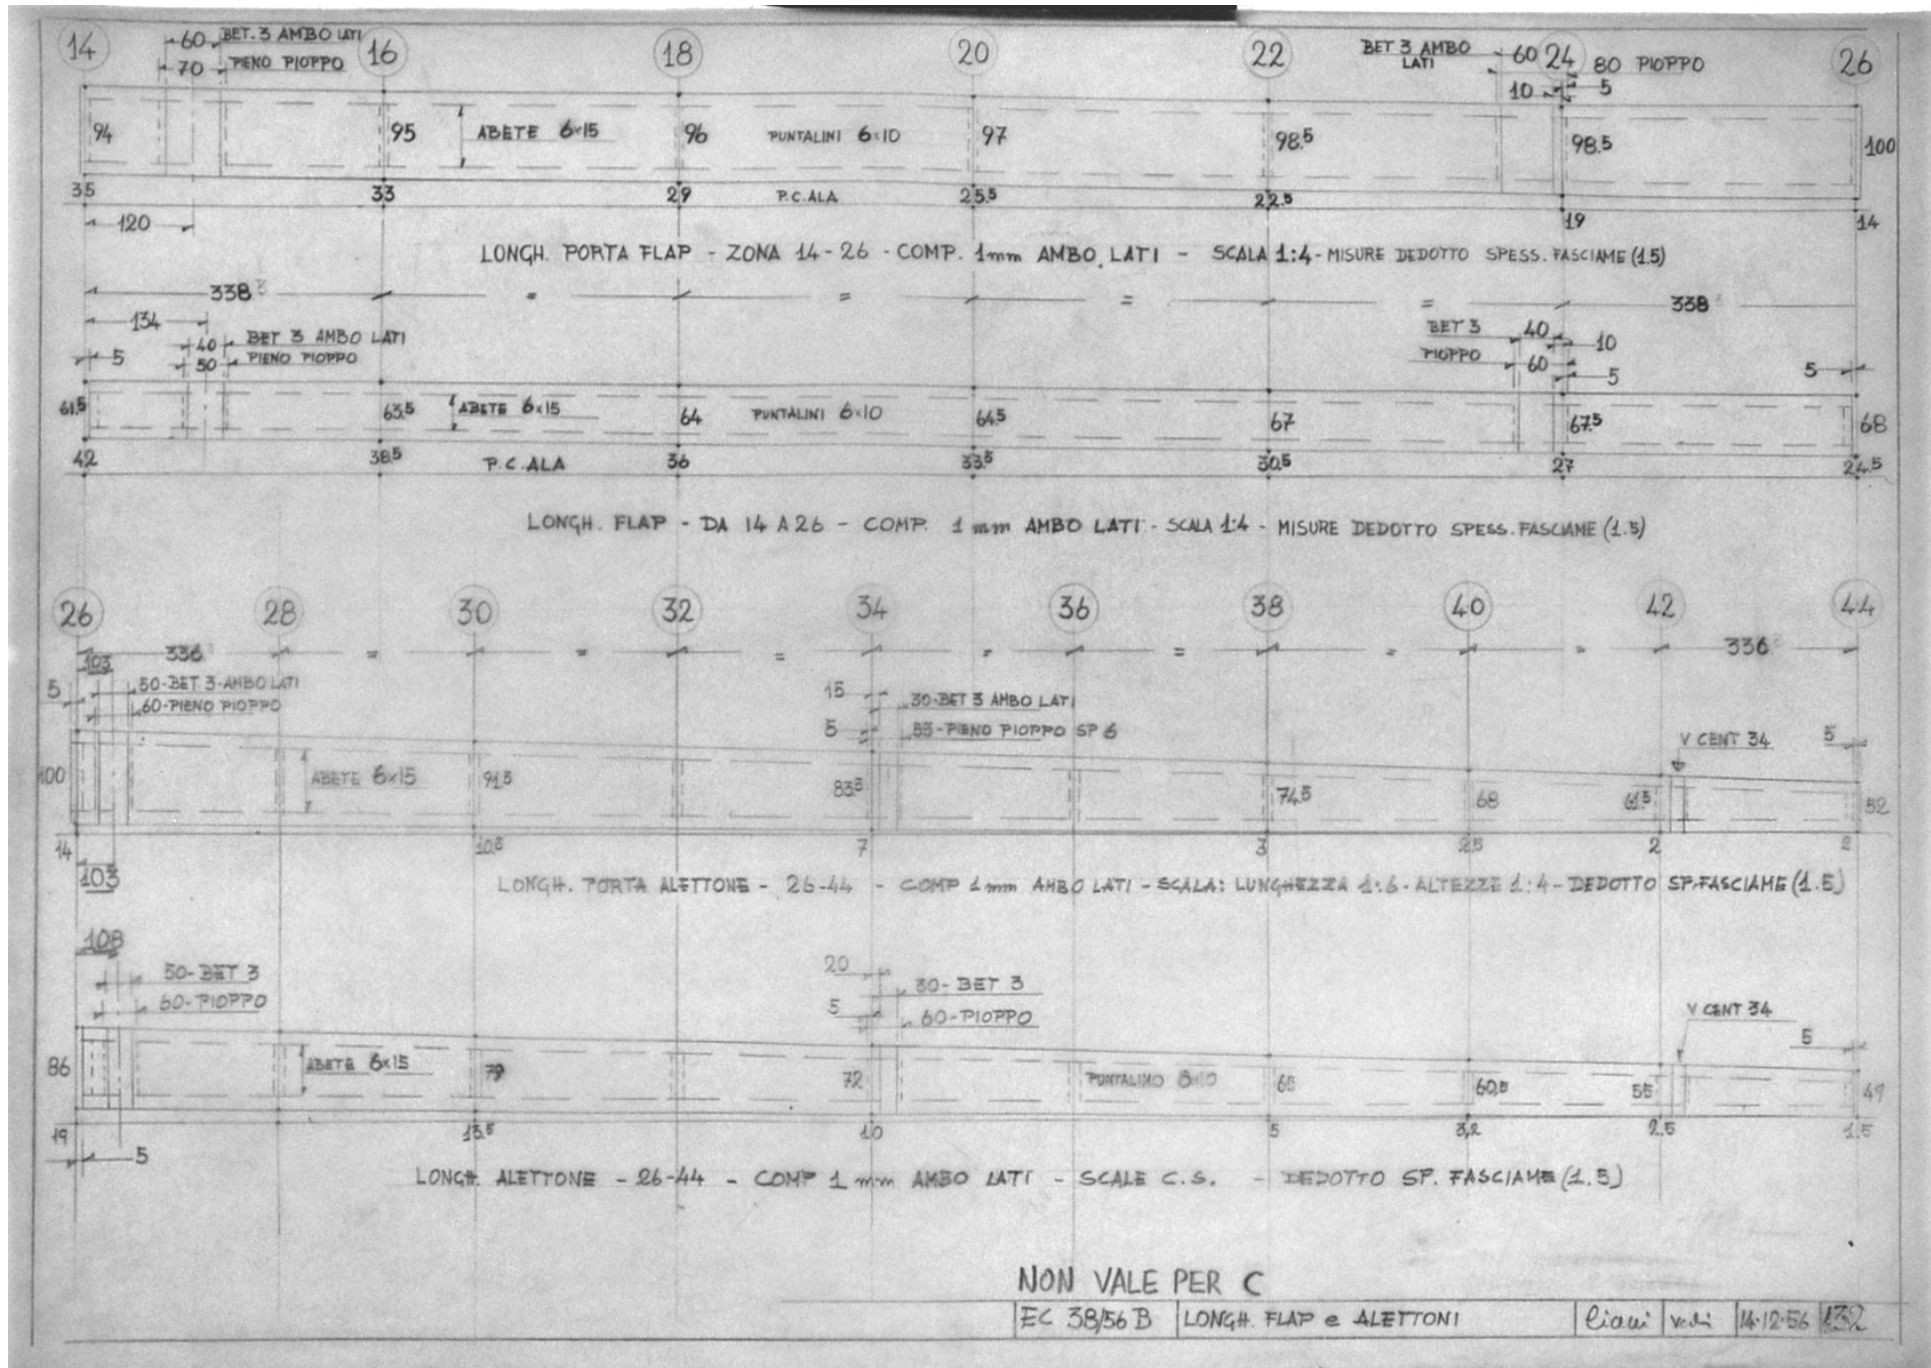 14 60 BET. 3 AMBO LATI 16 18 20 22 BET 3 AMBO LATI 60 24 80 PIOPPO 26
70 PIENO PIOPPO 10 5
94 95 ABETE 6x15 96 PUNTALINI 6x10 97 98.5 98.5 100
35 33 29 P.C. ALA 25.5 22.5 19 14
120
LONGH. PORTA FLAP - ZONA 14-26 - COMP. 1mm AMBO LATI - SCALA 1:4 - MISURE DEDOTTO SPESS. FASCIAME (1.5)
338 = = = = 338
134
5 40 BET 3 AMBO LATI BET 3 40 10
50 PIENO PIOPPO PIOPPO 60 5 5
61.5 63.5 ABETE 6x15 64 PUNTALINI 6x10 64.5 67 67.5 68
42 38.5 P.C. ALA 36 33.5 30.5 27 24.5
LONGH. FLAP - DA 14 A 26 - COMP. 1 mm AMBO LATI - SCALA 1:4 - MISURE DEDOTTO SPESS. FASCIAME (1.5)
26 28 30 32 34 36 38 40 42 44
336 = = = = = = = 336
103
5 50-BET. 3-AMBO LATI 15 30-BET 3 AMBO LATI
60-PIENO PIOPPO 5 55-PIENO PIOPPO SP 6 V CENT 34 5
100 ABETE 6x15 91.5 83.5 74.5 68 61.5 52
14 10.5 7 3 2.5 2 2
103
LONGH. PORTA ALETTONE - 26-44 - COMP 1 mm AMBO LATI - SCALA: LUNGHEZZA 1:6 - ALTEZZE 1:4 - DEDOTTO SP. FASCIAME (1.5)
108
50-BET 3 20 30-BET 3
60-PIOPPO 5 60-PIOPPO V CENT 34 5
86 ABETE 6x15 79 72 PUNTALINO 6x10 65 60.5 55 49
19 13.5 10 5 3,2 2.5 1.5
5
LONGH. ALETTONE - 26-44 - COMP 1 mm AMBO LATI - SCALE C.S. - DEDOTTO SP. FASCIAME (1.5)
NON VALE PER C
EC 38/56 B LONGH. FLAP e ALETTONI 14-12-56 132